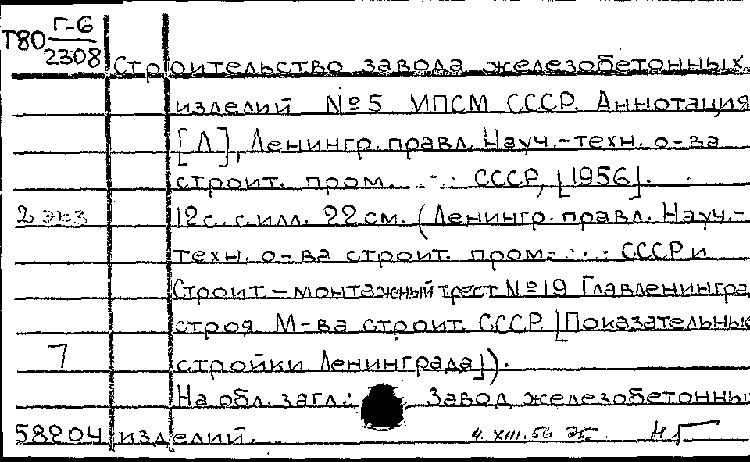 Т80 Г-6
2308
Строительство завода железобетонных
изделий №5 ИПСМ СССР. Аннотация
[Л], Ленингр. правл. Науч.-техн. о-ва
строит. пром. СССР, [1956].
2 экз 12 с. с илл. 22 см. (Ленингр. правл. Науч.-
техн. о-ва строит. пром. СССР и
Строит-монтажный трест №19 Главленингра
строя М-ва строит. СССР. [Показательные
7 стройки Ленинграда]).
На обл. загл.: Завод железобетонны
58204 изделий. 4.XIII.56